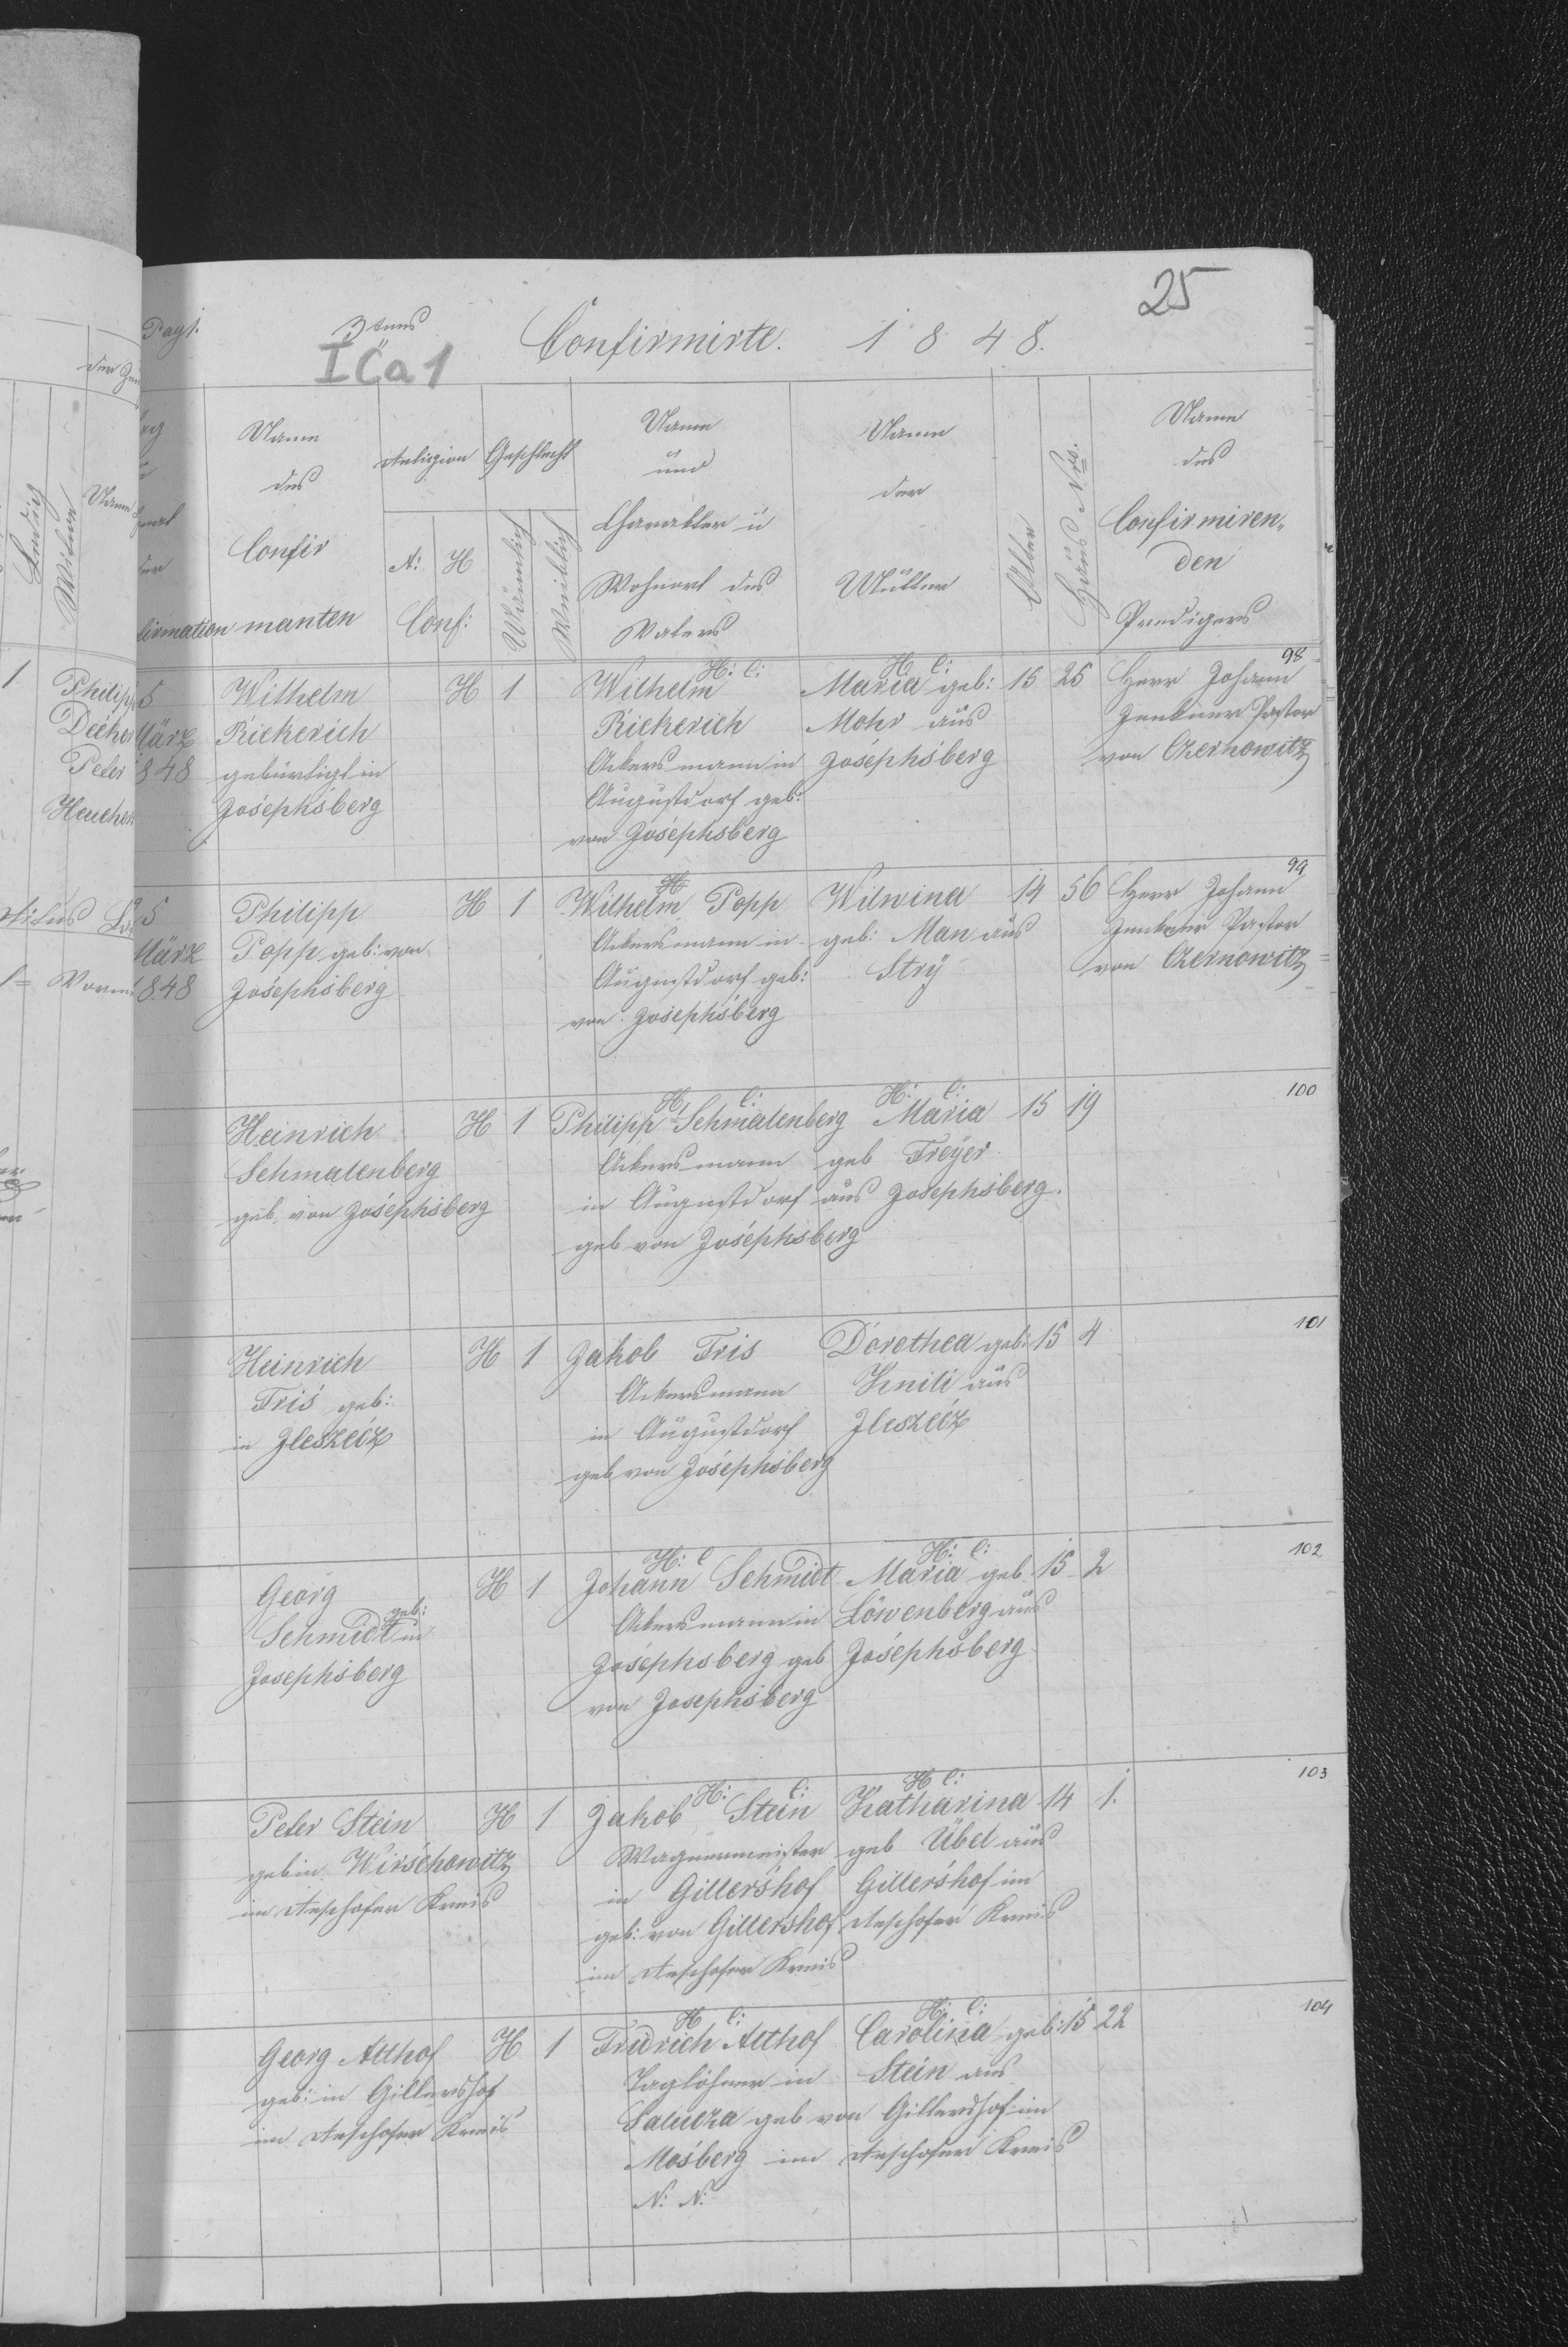 25
3tens
Confirmirte. 1 8 4 8.
I Ca 1
Name
des
Confir
manten
Religion
A: H
Conf:
Geschlecht
Mänlich
Weiblich
Name
und
Charakter ü
Wohnort des
Vaters
Name
der
Mütter
Alter
Haus Nro.
Name
des
Confirmiren-
den
Predigers
5
März
848
Wilhelm
Rickerich
gebürtigt in
Josephsberg
H 1
H: C:
Wilhelm
Rickerich
Ackersmann in
Augustdorf geb:
von Josephsberg
H C:
Maria geb:
Mohr aus
Josephsberg
15 25
98
Herr Johann
Zenkner Pastor
von Czernowitz
5
März
848
Philipp
Popp geb: von
Josephsberg
H 1
Wilhelm Popp
Ackersmann in
Augustdorf geb:
von Josephsberg
Wilwina
geb: Man aus
Strÿ
14 56
99
Herr Johann
Zenkner Pastor
von Czernowitz
Heinrich
Schmalenberg
geb. von Josephsberg
H 1
H: C:
Philipp Schmalenberg
Ackersmann
in Augustdorf
geb von Josephsberg
H: C:
Maria
geb Freÿer
aus Josephsberg.
15 19
100
Heinrich
Fris geb:
in Ileszeiz
H 1
Jakob Fris
Ackersmann
in Augustdorf
geb von Josephsberg
Dorothea geb:
Knili aus
Ileszeiz
15 4
101
Georg
Schmidt geb:
in
Josephsberg
H 1
H: C
Johann Schmidt
Ackersmann in
Josephsberg geb
von Josephsberg
H: C:
Maria geb
Löwenberg aus
Josephsberg
15 2
102
Peter Stein
geb in Wirschowitz
im Reschofer Kreis
H 1
H: C:
Jakob Stein
Wagnermeister
in Gillershof
geb: von Gillershof
im Reschofer Kreis
H C:
Katharina
geb Übel aus
Gillershof im
Reschofer Kreis
14 1.
103
Georg Althof
geb: in Gillershof
im Reschofer Kreis
H 1
H C:
Fridrich Althof
Taglöhner in
Satucza geb von
Mosberg im
N: N:
H: C:
Carolina geb:
Stein aus
Gillershof im
Reschofer Kreis
15 22
104
Philipp
Peter